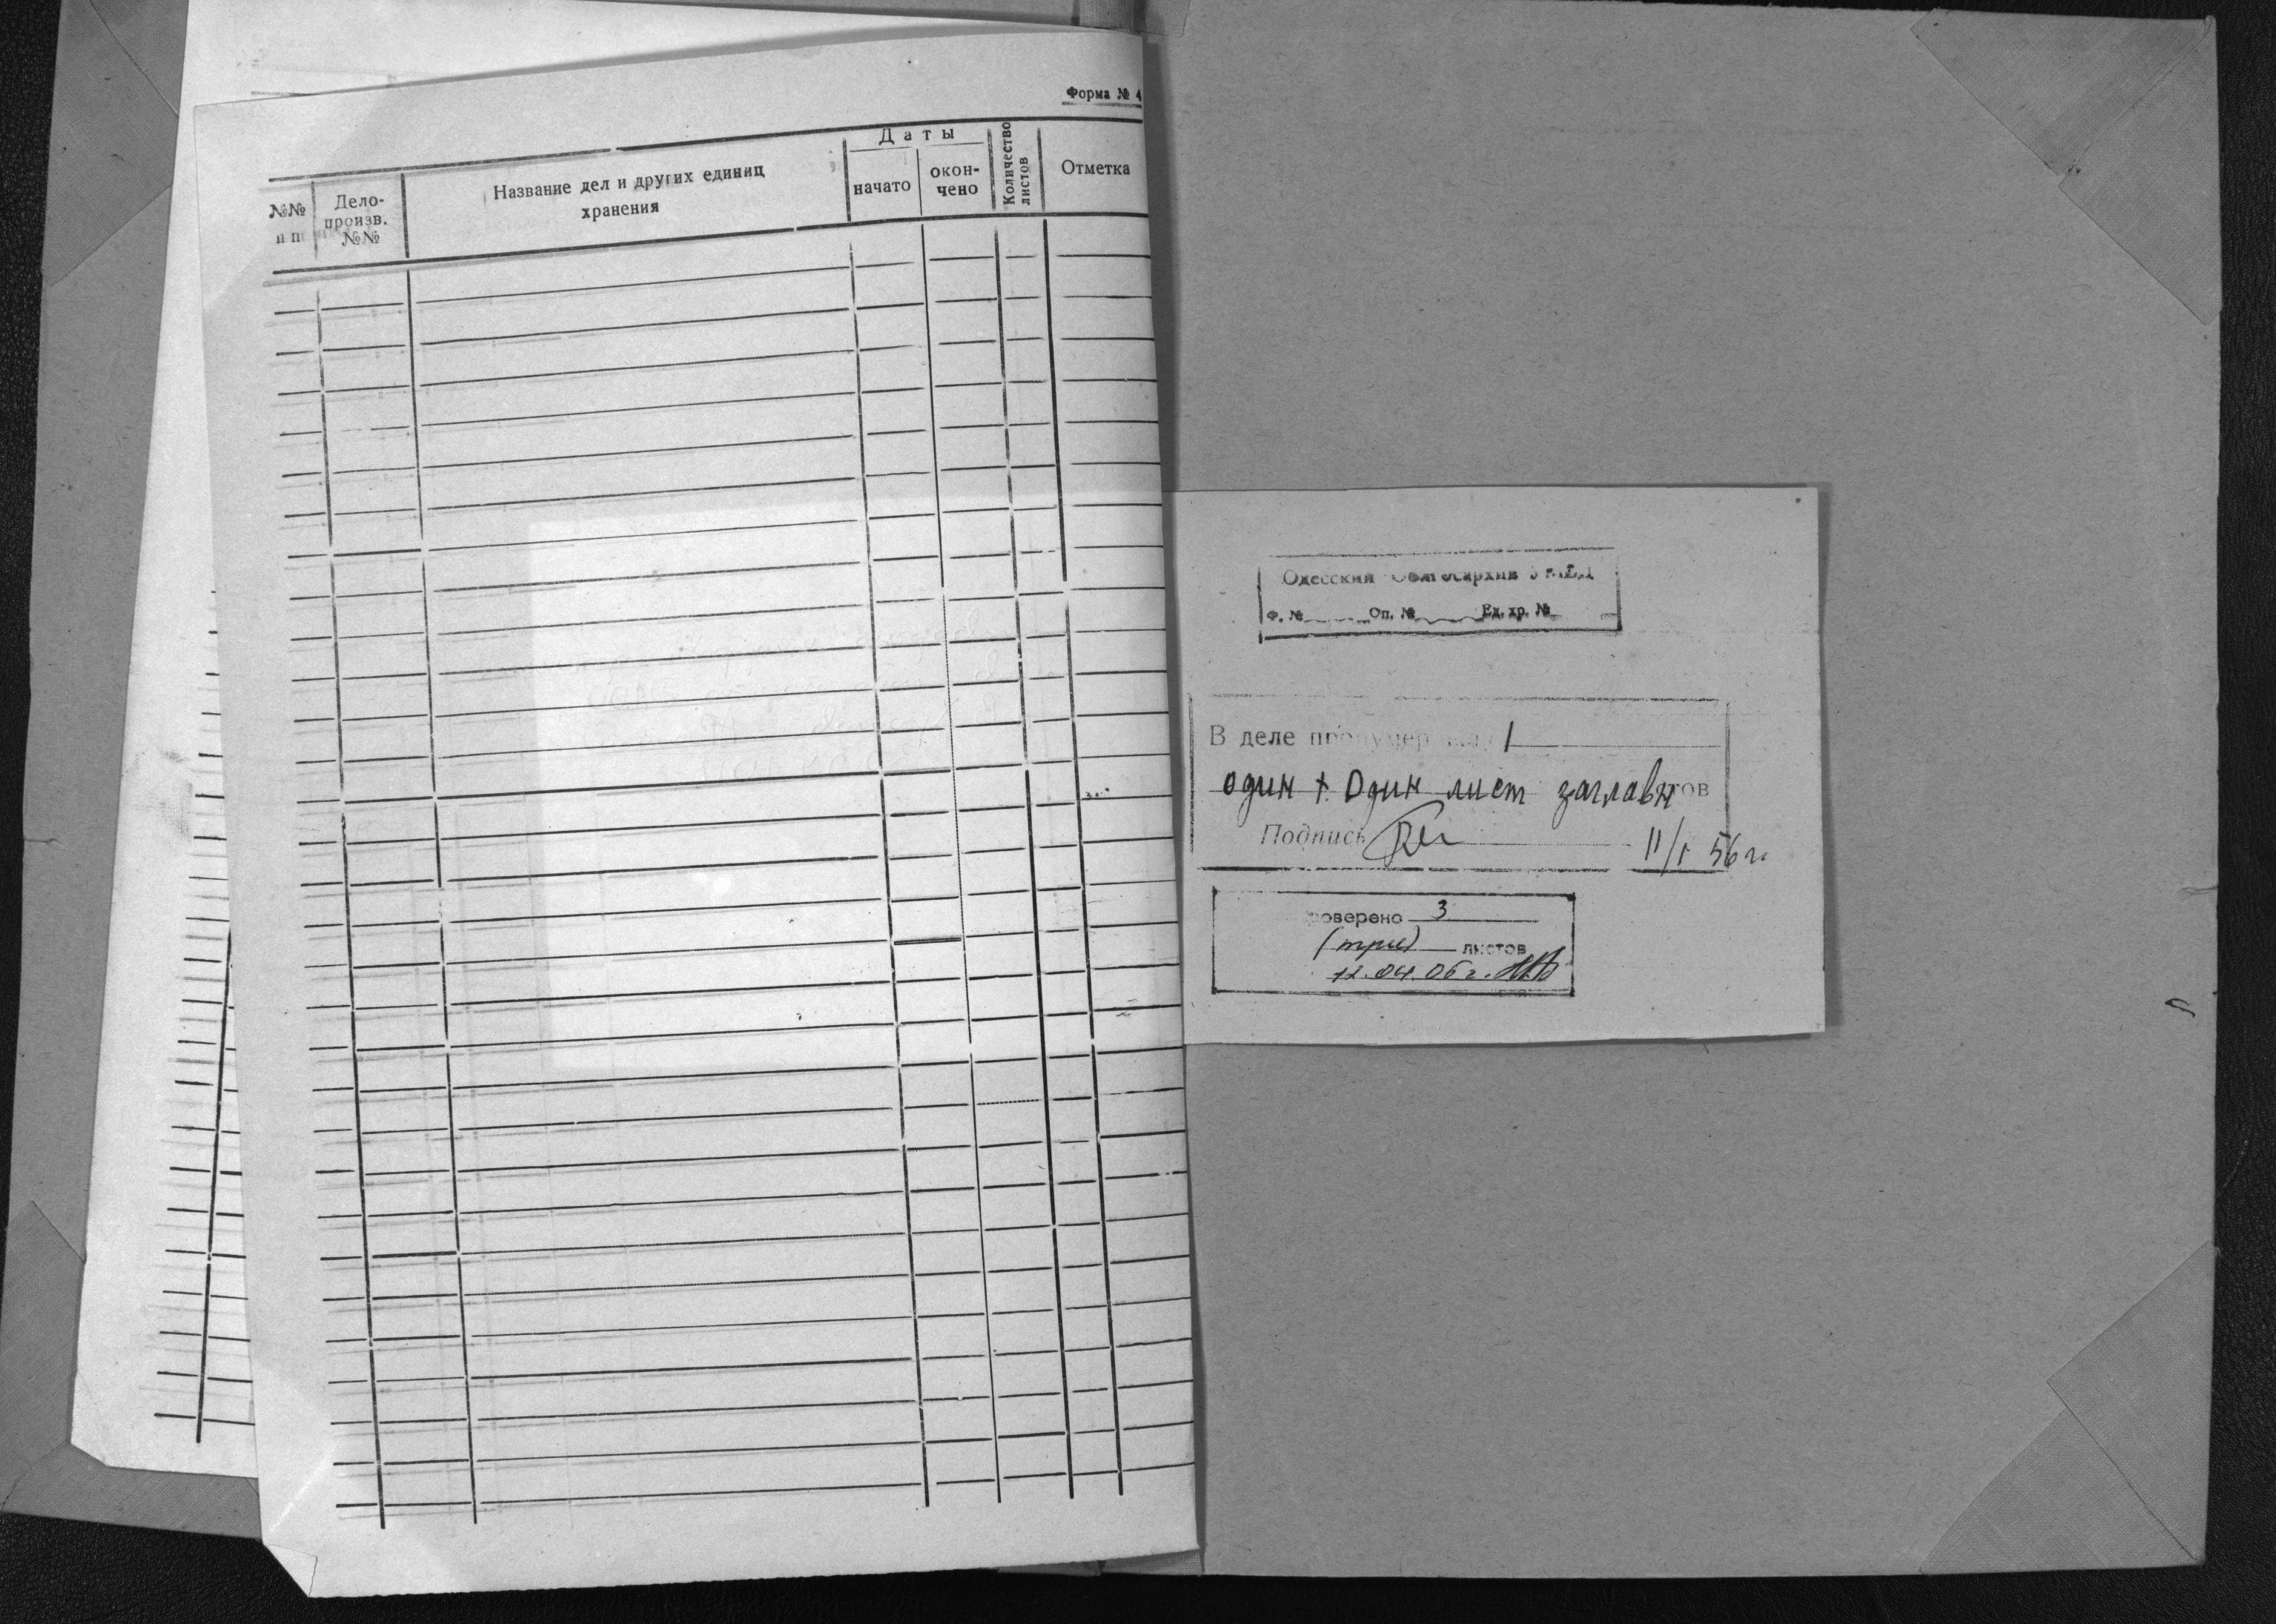 Форма № 4
№№
п п
Дело-
произв.
№№
Название дел и других единиц
хранения
Даты
начато
окон-
чено
Количество
листов
Отметка
Одесский Облгосархив
Ф. № Оп. № Ед. хр. №
В деле 1
один + Один лист заглавн
Подпись
11/I 56 г.
Проверено 3
(три) листов
12.04.06 г.